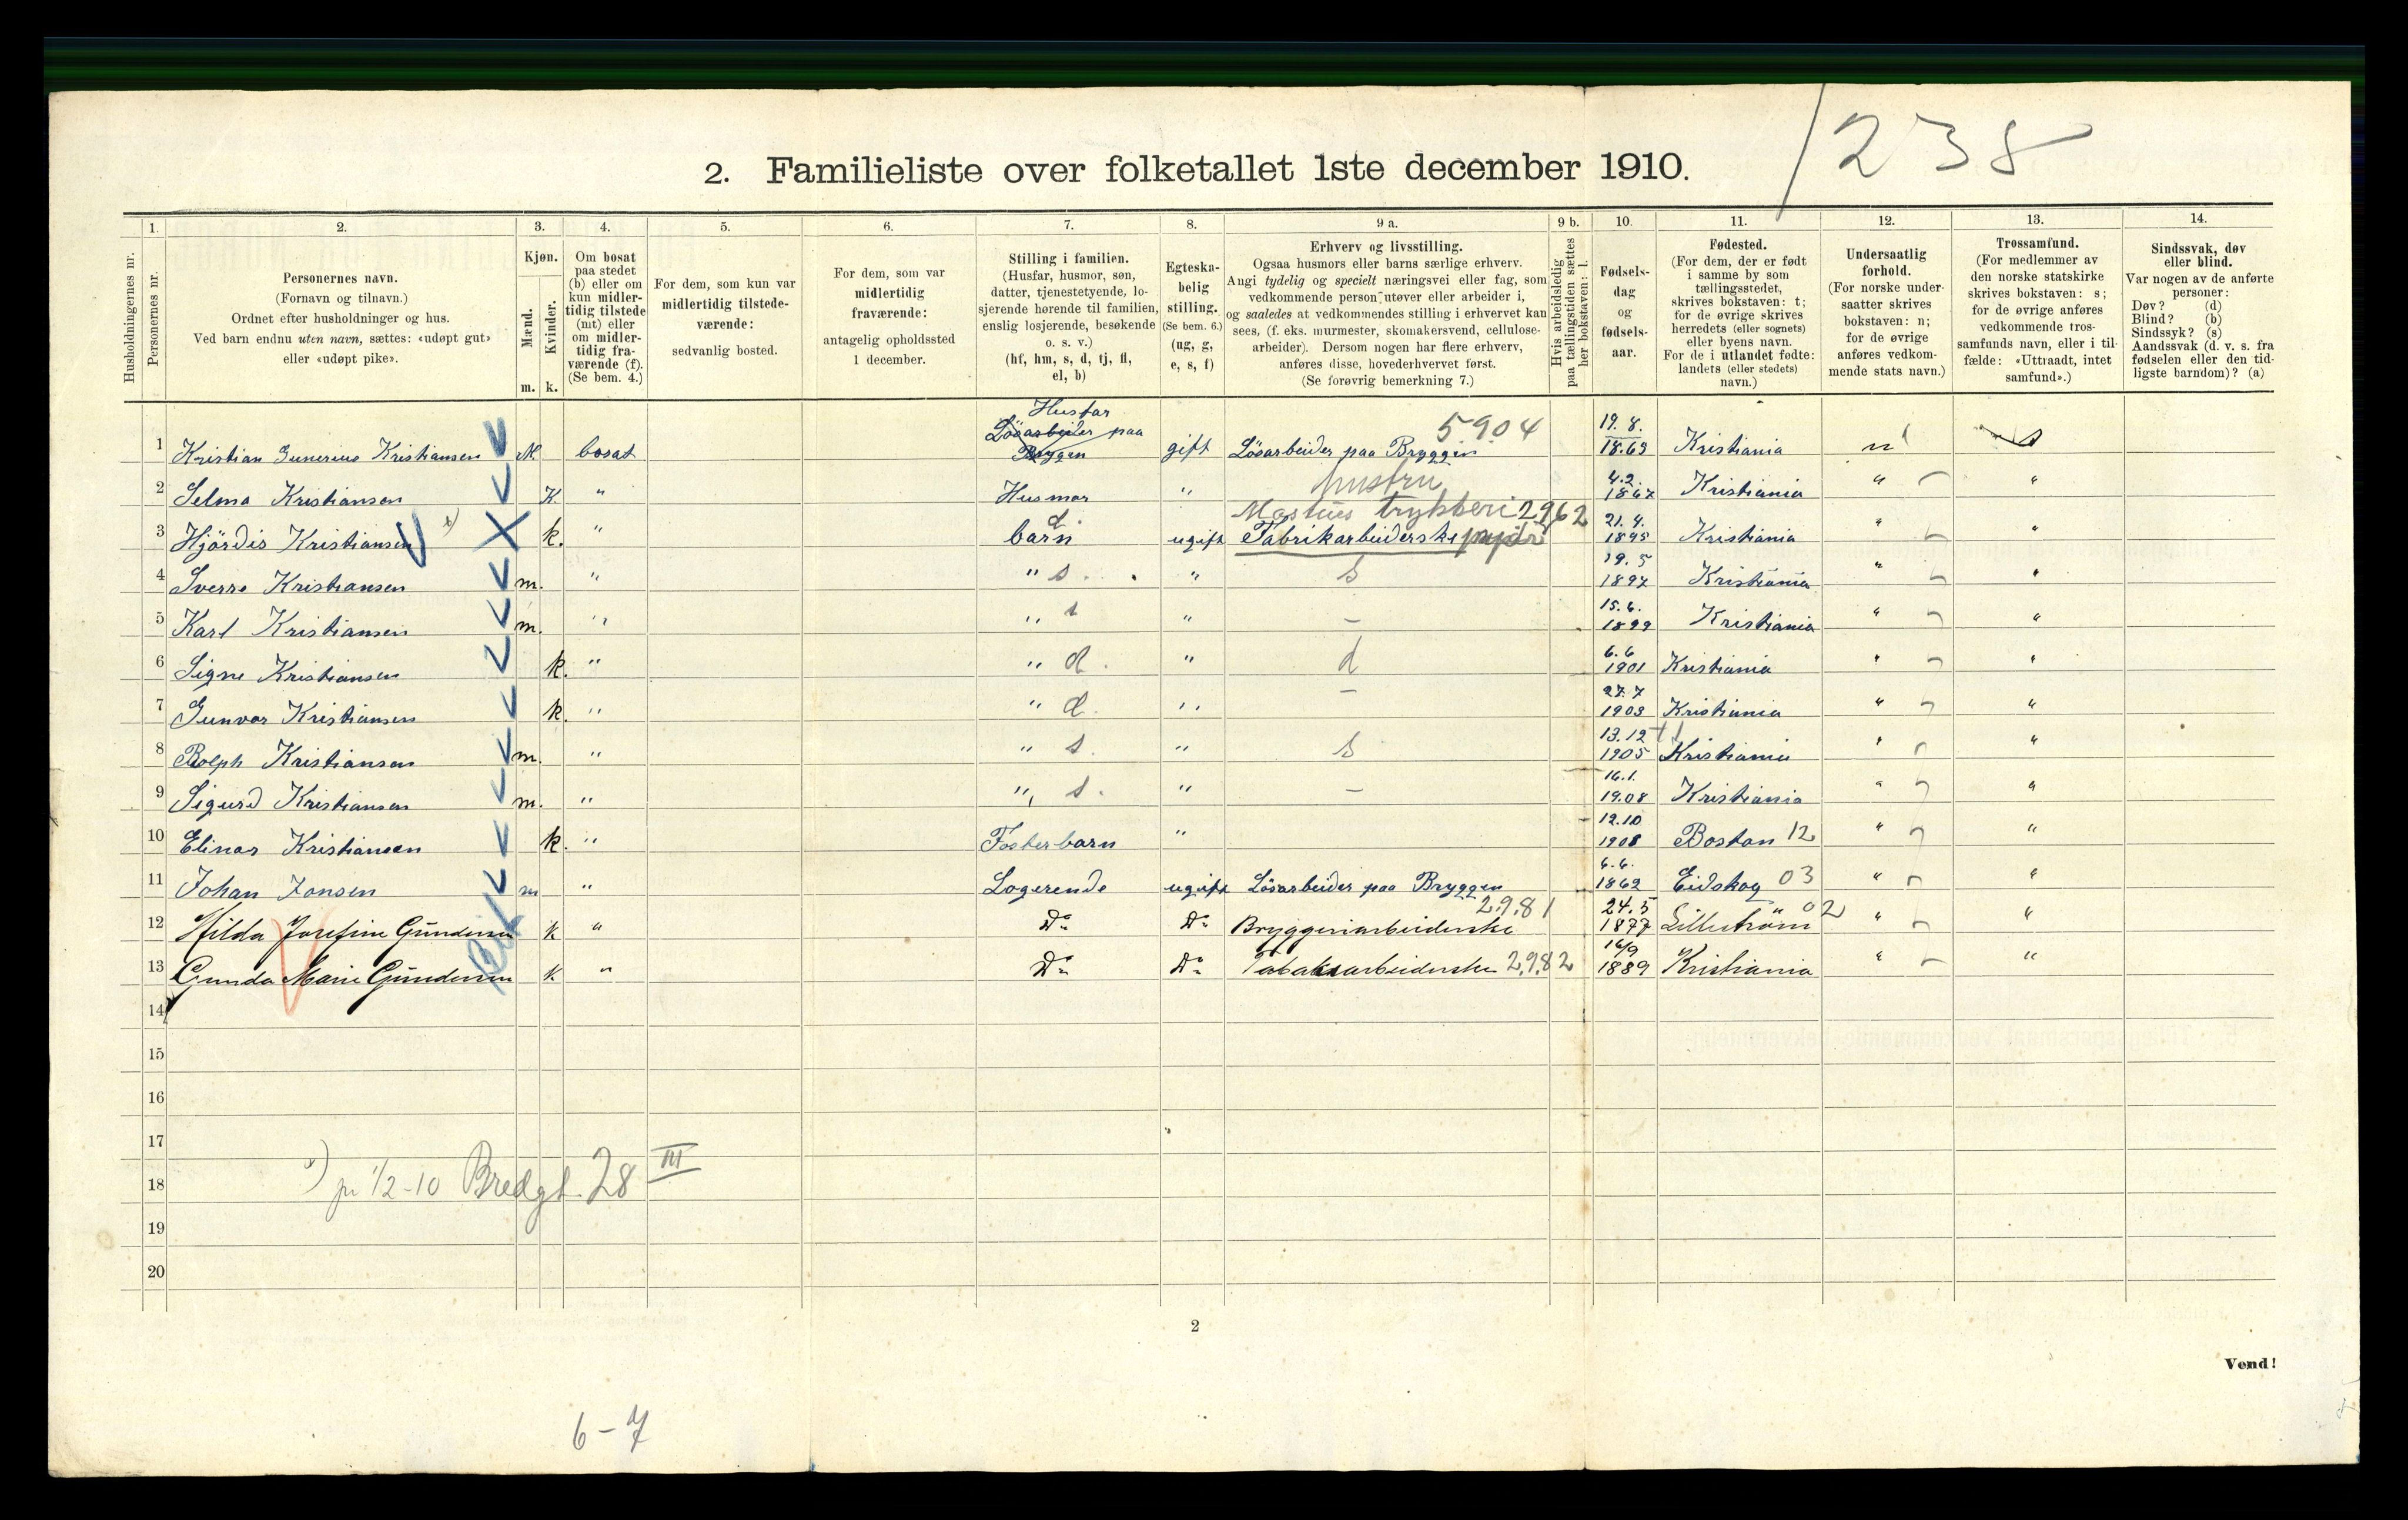 1238
2. Familieliste over folketallet 1ste december 1910.
1. 2. 3. 4. 5. 6. 7. 8. 9 a. 9 b. 10. 11. 12. 13. 14.
Husholdningernes nr.
Personernes nr.
Personernes navn.
(Fornavn og tilnavn.)
Ordnet efter husholdninger og hus.
Ved barn endnu uten navn, sættes: «udøpt gut»
eller «udøpt pike».
Kjøn.
Mænd.
Kvinder.
m. k.
Om bosat
paa stedet
(b) eller om
kun midler-
tidig tilstede
(mt) eller
om midler-
tidig fra-
værende (f).
(Se bem. 4.)
For dem, som kun var
midlertidig tilstede-
værende:
sedvanlig bosted.
For dem, som var
midlertidig
fraværende:
antagelig opholdssted
1 december.
Stilling i familien.
(Husfar, husmor, søn,
datter, tjenestetyende, lo-
sjerende hørende til familien,
enslig losjerende, besøkende
o. s. v.)
(hf, hm, s, d, tj, fl,
el, b)
Egteska-
belig
stilling.
(Se bem. 6.)
(ug, g,
e, s, f)
Erhverv og livsstilling.
Ogsaa husmors eller barns særlige erhverv.
Angi tydelig og specielt næringsvei eller fag, som
vedkommende person utøver eller arbeider i,
og saaledes at vedkommendes stilling i erhvervet kan
sees, (f. eks. murmester, skomakersvend, cellulose-
arbeider). Dersom nogen har flere erhverv,
anføres disse, hovederhvervet først.
(Se forøvrig bemerkning 7.)
Hvis arbeidsledig
paa tællingstiden sættes
her bokstaven: l.
Fødsels-
dag
og
fødsels-
aar.
Fødested.
(For dem, der er født
i samme by som
tællingsstedet,
skrives bokstaven: t;
for de øvrige skrives
herredets (eller sognets)
eller byens navn.
For de i utlandet fødte:
landets (eller stedets)
navn.)
Undersaatlig
forhold.
(For norske under-
saatter skrives
bokstaven: n;
for de øvrige
anføres vedkom-
mende stats navn.)
Trossamfund.
(For medlemmer av
den norske statskirke
skrives bokstaven: s;
for de øvrige anføres
vedkommende tros-
samfunds navn, eller i til-
fælde: «Uttraadt, intet
samfund».)
Sindssvak, døv
eller blind.
Var nogen av de anførte
personer:
Døv? (d)
Blind? (b)
Sindssyk? (s)
Aandssvak (d. v. s. fra
fødselen eller den tid-
ligste barndom)? (a)
Husfar
Lösarbeider paa 5904 19. 8.
1 Kristian Gunerius Kristiansen M bosat Bryggen gift Lösarbeider paa Bryggen 1869 Kristiania n s
hustru 4.2.
2 Selma Kristiansen K. " Husmor " 1867 Kristiania " "
d. trykkeri 2962 21. 4.
3 Hjördis Kristiansen x) k. " barn ugift Fabrikarbeiderske 1895 Kristiania " "
19. 5
4 Sverre Kristiansen m. " " s. " s 1897 Kristiania " "
15. 6.
5 Karl Kristiansen m. " " s " – 1899 Kristiania " "
6. 6
6 Signe Kristiansen k. " " d. " d 1901 Kristiania " "
27. 7
7 Gunvor Kristiansen k. " " d. " – 1903 Kristiania " "
13. 12
8 Rolph Kristiansen m. " " s. " s 1905 Kristiania " "
16. 1.
9 Sigurd Kristiansen m. " " s. " – 1908 Kristiania " "
12. 10
10 Elinor Kristiansen k. " Fosterbarn " 1908 Boston 12 " "
6. 6.
11 Johan Jonsen m " Logerende ugift Lösarbeider paa Bryggen 1862 Eidskog 03 " "
2981 24. 5 02
12 Hilda Josefine Gundersen k " Do Do Bryggeriarbeiderske 1877 Lilleström " "
16/9
13 Gunda Marie Gundersen k " Do Do Tobaksarbeiderske 2982 1889 Kristiania " "
14
15
16
17
x) pr 1/2-10 Bredgt. 28 III
18
19
20
2
Vend!
6-7